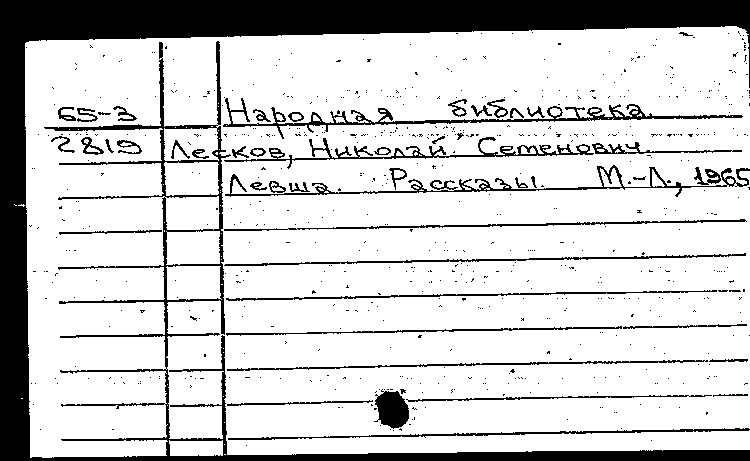 65-3 Народная библиотека.
2819 Лесков, Николай Семенович.
Левша. Рассказы. М.-Л., 1965